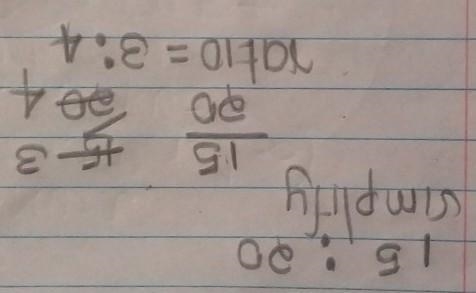 15 : 20
simplify
15/20 15/20 3/4
ratio = 3:4